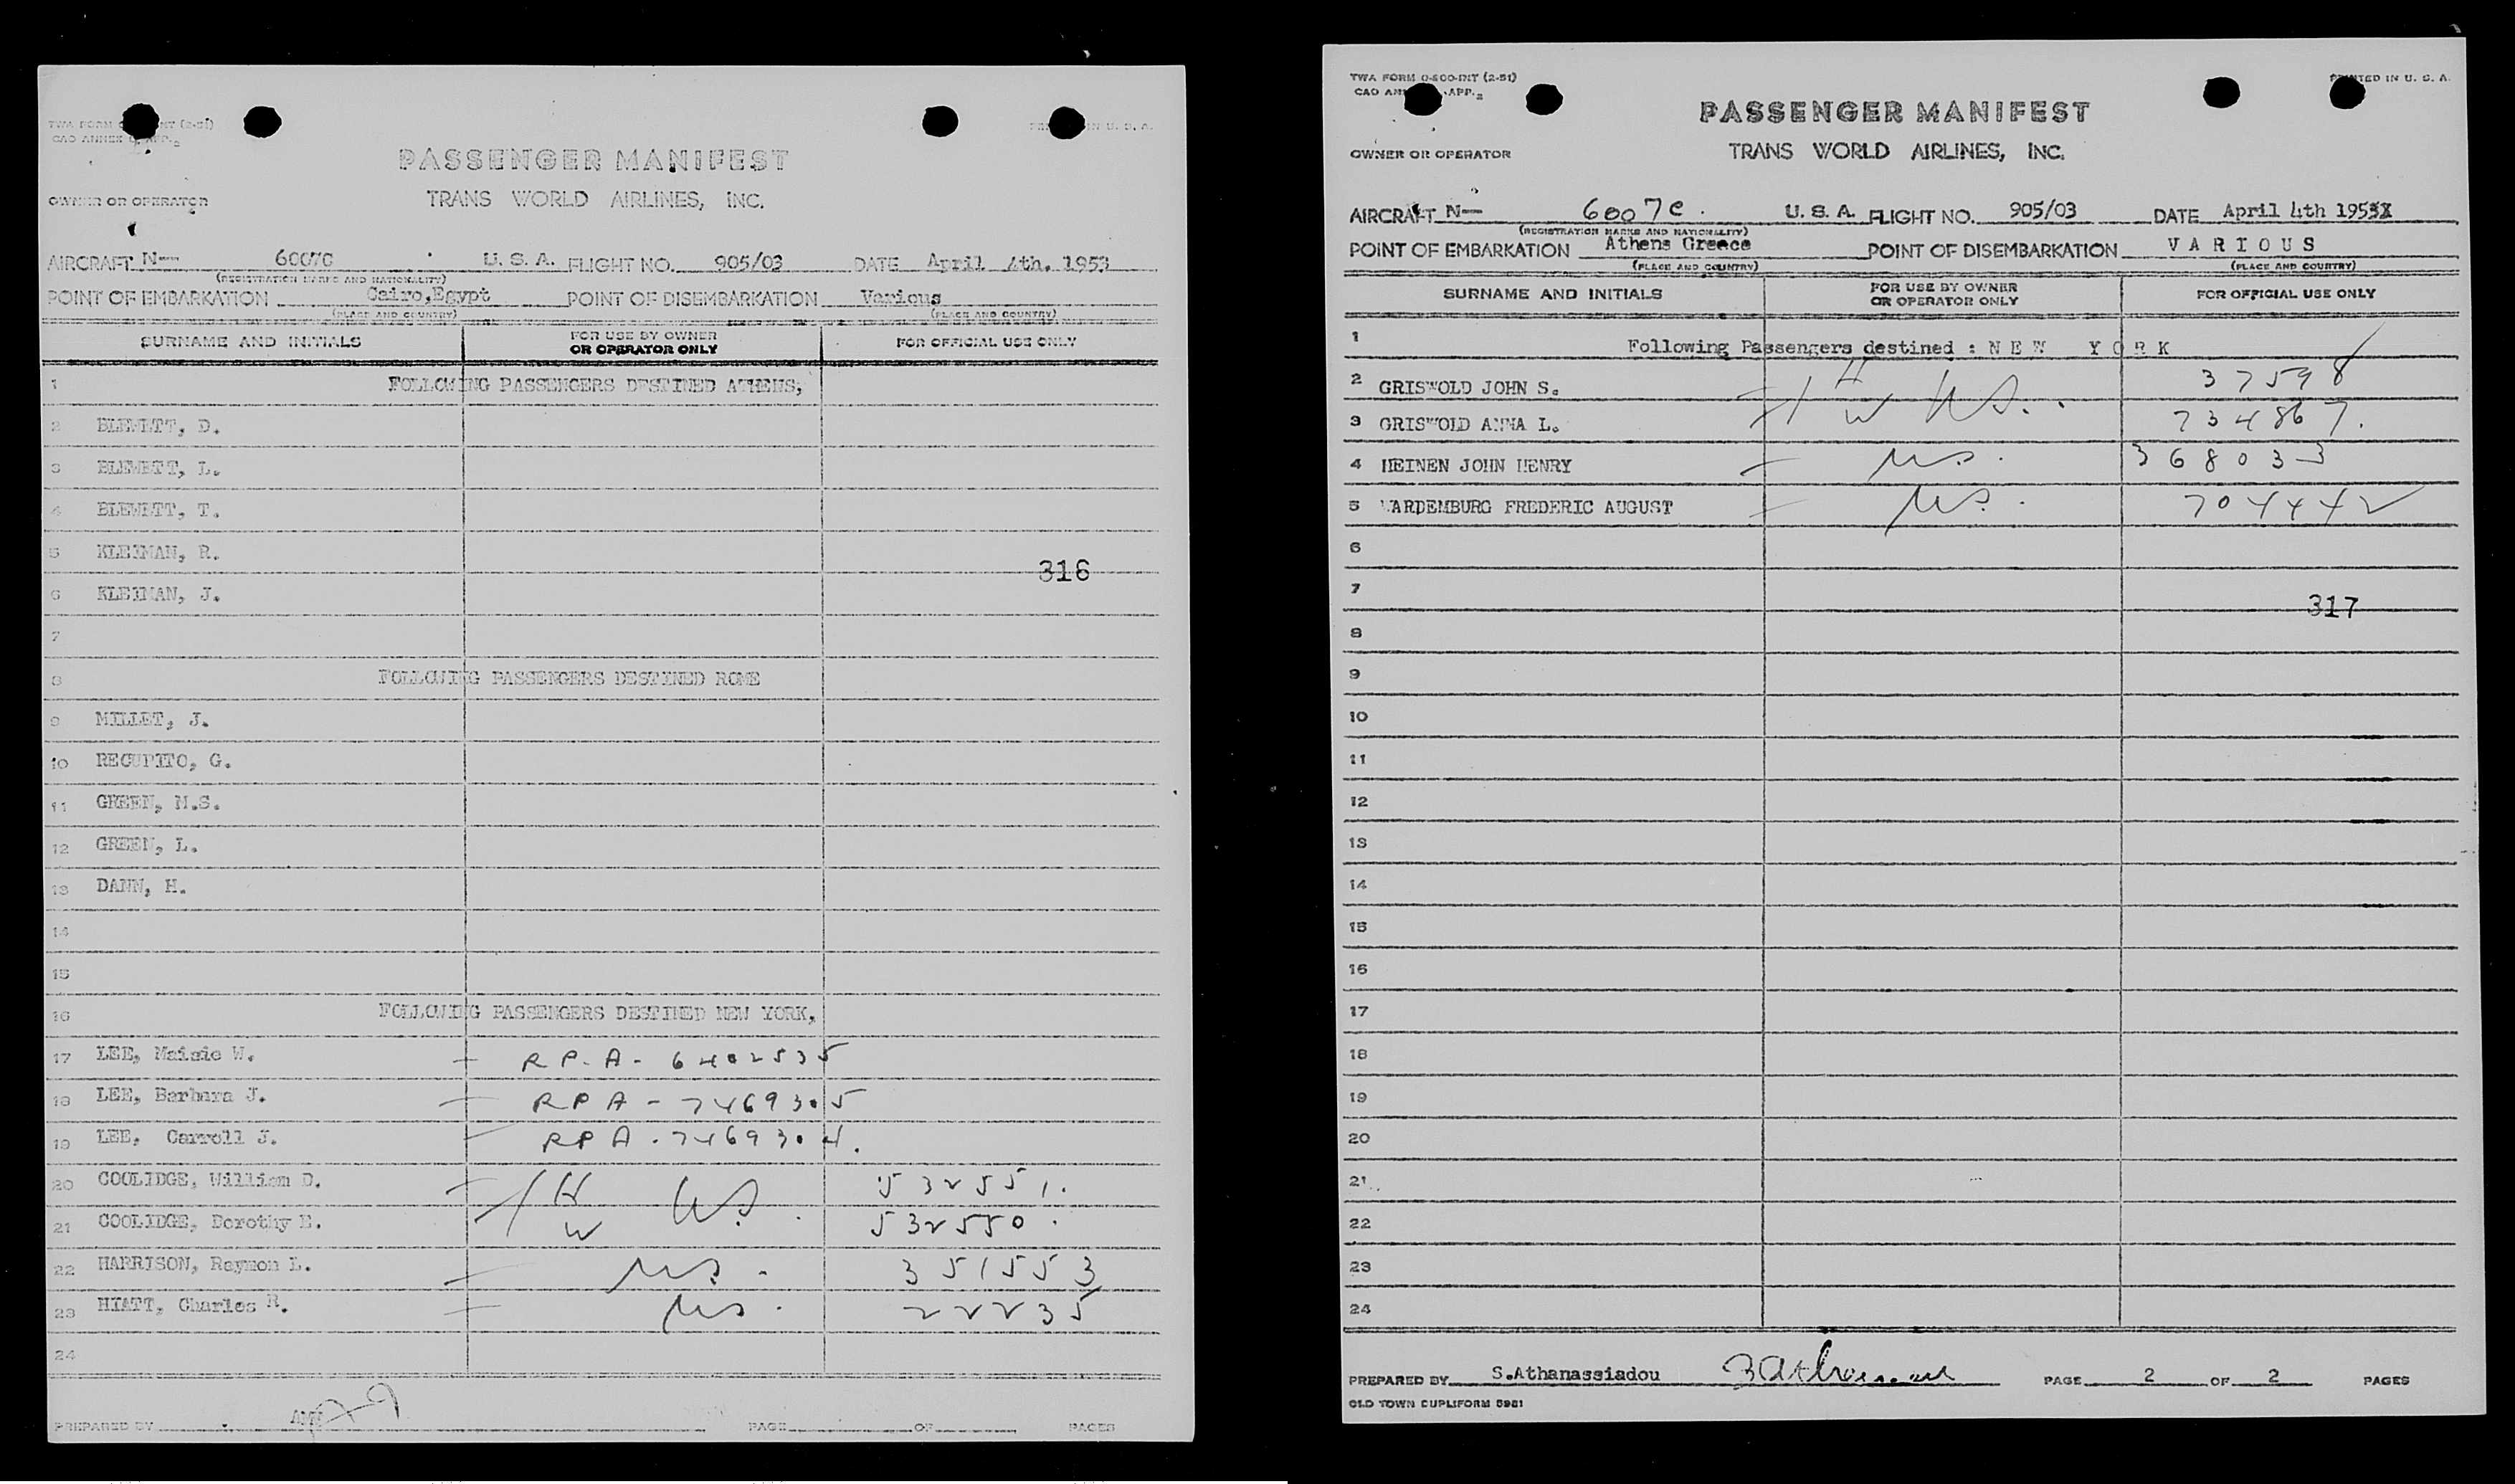 TWA FORM
CAO ANNEX
PASSENGER MANIFEST
OWNER OR OPERATOR
TRANS WORLD AIRLINES, INC.
AIRCRAFT N— 6007C U. S. A. FLIGHT NO. 905/03 DATE April 4th. 1953
(REGISTRATION MARKS AND NATIONALITY)
POINT OF EMBARKATION Cairo,Egypt POINT OF DISEMBARKATION Various
(PLACE AND COUNTRY) (PLACE AND COUNTRY)
SURNAME AND INITIALS FOR USE BY OWNER OR OPERATOR ONLY FOR OFFICIAL USE ONLY
1 FOLLOWING PASSENGERS DESTINED ATHENS,
2 BLEWETT, D.
3 BLEWETT, L.
4 BLEWETT, T.
5 KLEIMAN, R.
316
6 KLEIMAN, J.
7
8 FOLLOWING PASSENGERS DESTINED ROME
9 MILLET, J.
10 RECUPITO, G.
11 GREEN, M.S.
12 GREEN, L.
13 DANN, H.
14
15
16 FOLLOWING PASSENGERS DESTINED NEW YORK,
17 LEE, Maisie W. — RP-A- 6402535
18 LEE, Barbara J. — RPA - 7469305
19 LEE, Carroll J. — RPA - 7469304.
20 COOLIDGE, William D. — H US. 532551.
21 COOLIDGE, Dorothy E. W 532550.
22 HARRISON, Raymon L. — US. 351553
23 HIATT, Charles R. — US. 22235
24
PREPARED BY PAGE OF PAGES
TWA FORM 0-800-INT (2-51) PRINTED IN U. S. A.
CAO ANNEX APP. 2
PASSENGER MANIFEST
OWNER OR OPERATOR
TRANS WORLD AIRLINES, INC.
AIRCRAFT N— 6007C. U. S. A. FLIGHT NO. 905/03 DATE April 4th 1953
(REGISTRATION MARKS AND NATIONALITY)
POINT OF EMBARKATION Athens Greece POINT OF DISEMBARKATION V A R I O U S
(PLACE AND COUNTRY) (PLACE AND COUNTRY)
SURNAME AND INITIALS FOR USE BY OWNER OR OPERATOR ONLY FOR OFFICIAL USE ONLY
1 Following Passengers destined : N E W Y O R K
2 GRISWOLD JOHN S. H US. 37598
3 GRISWOLD ANNA L. W 734867.
4 HEINEN JOHN HENRY — US. 368033
5 WARDEMBURG FREDERIC AUGUST — US. 704442
6
7
317
8
9
10
11
12
13
14
15
16
17
18
19
20
21
22
23
24
PREPARED BY S.Athanassiadou PAGE 2 OF 2 PAGES
OLD TOWN DUPLIFORM 5981